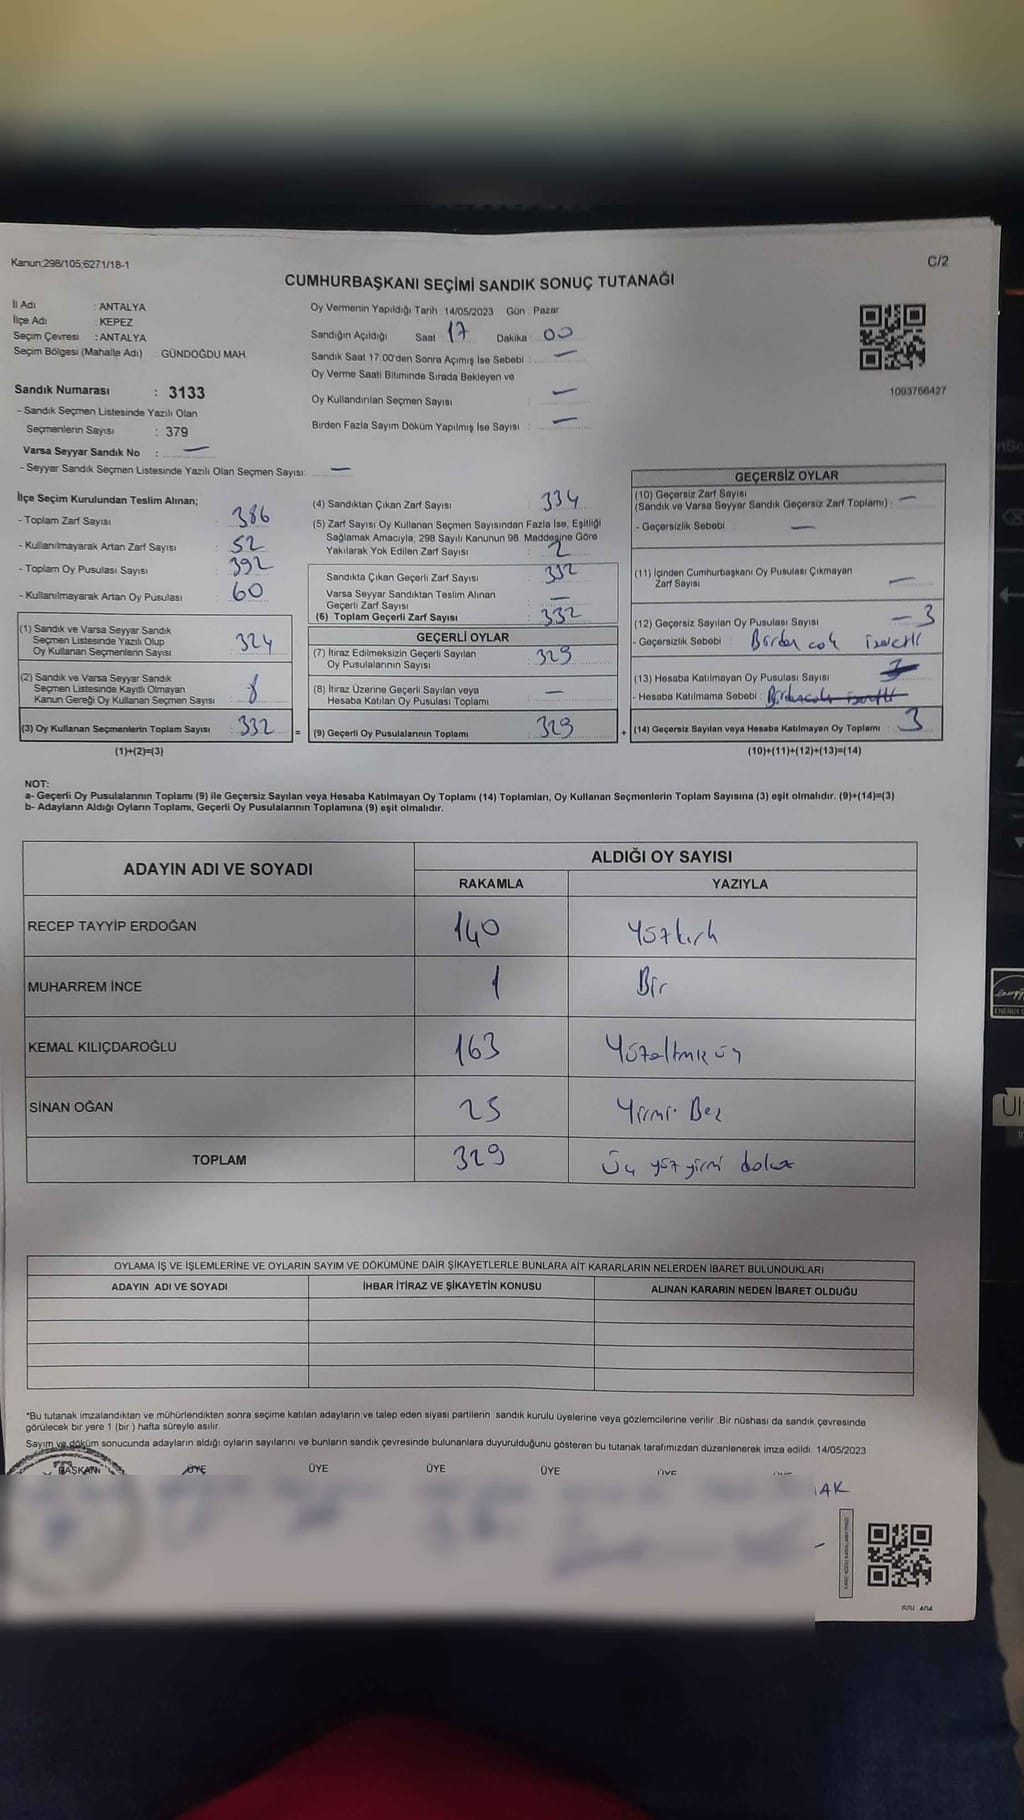 Kanun;298/105;6271/18-1
C/2
CUMHURBAŞKANI SEÇİMİ SANDIK SONUÇ TUTANAĞI
İl Adı : ANTALYA
İlçe Adı : KEPEZ
Seçim Çevresi : ANTALYA
Seçim Bölgesi (Mahalle Adı) : GÜNDOĞDU MAH.
Oy Vermenin Yapıldığı Tarih 14/05/2023 Gün : Pazar
Sandığın Açıldığı Saat 17 Dakika 00
Sandık Saat 17.00'den Sonra Açımış İse Sebebi : —
Oy Verme Saati Bitiminde Sırada Bekleyen ve
Oy Kullandırılan Seçmen Sayısı : —
Birden Fazla Sayım Döküm Yapılmış İse Sayısı : —
1093766427
Sandık Numarası : 3133
- Sandık Seçmen Listesinde Yazılı Olan
Seçmenlerin Sayısı : 379
Varsa Seyyar Sandık No : —
- Seyyar Sandık Seçmen Listesinde Yazılı Olan Seçmen Sayısı: —
İlçe Seçim Kurulundan Teslim Alınan;
- Toplam Zarf Sayısı : 386
- Kullanılmayarak Artan Zarf Sayısı : 52
- Toplam Oy Pusulası Sayısı : 392
- Kullanılmayarak Artan Oy Pusulası : 60
(1) Sandık ve Varsa Seyyar Sandık
Seçmen Listesinde Yazılı Olup
Oy Kullanan Seçmenlerin Sayısı : 324
(2) Sandık ve Varsa Seyyar Sandık
Seçmen Listesinde Kayıtlı Olmayan
Kanun Gereği Oy Kullanan Seçmen Sayısı : 8
(3) Oy Kullanan Seçmenlerin Toplam Sayısı : 332 =
(1)+(2)=(3)
(4) Sandıktan Çıkan Zarf Sayısı : 334
(5) Zarf Sayısı Oy Kullanan Seçmen Sayısından Fazla İse, Eşitliği
Sağlamak Amacıyla; 298 Sayılı Kanunun 98. Maddesine Göre
Yakılarak Yok Edilen Zarf Sayısı : 2
Sandıkta Çıkan Geçerli Zarf Sayısı : 332
Varsa Seyyar Sandıktan Teslim Alınan
Geçerli Zarf Sayısı : —
(6) Toplam Geçerli Zarf Sayısı : 332
GEÇERLİ OYLAR
(7) İtiraz Edilmeksizin Geçerli Sayılan
Oy Pusulalarının Sayısı : 329
(8) İtiraz Üzerine Geçerli Sayılan veya
Hesaba Katılan Oy Pusulası Toplamı : —
(9) Geçerli Oy Pusulalarının Toplamı : 329 +
GEÇERSİZ OYLAR
(10) Geçersiz Zarf Sayısı
(Sandık ve Varsa Seyyar Sandık Geçersiz Zarf Toplamı) : —
- Geçersizlik Sebebi : —
(11) İçinden Cumhurbaşkanı Oy Pusulası Çıkmayan
Zarf Sayısı : —
(12) Geçersiz Sayılan Oy Pusulası Sayısı : — 3
- Geçersizlik Sebebi : Birden çok
(13) Hesaba Katılmayan Oy Pusulası Sayısı : 3
- Hesaba Katılmama Sebebi :
(14) Geçersiz Sayılan veya Hesaba Katılmayan Oy Toplamı : 3
(10)+(11)+(12)+(13)=(14)
NOT:
a- Geçerli Oy Pusulalarının Toplamı (9) ile Geçersiz Sayılan veya Hesaba Katılmayan Oy Toplamı (14) Toplamları, Oy Kullanan Seçmenlerin Toplam Sayısına (3) eşit olmalıdır. (9)+(14)=(3)
b- Adayların Aldığı Oyların Toplamı, Geçerli Oy Pusulalarının Toplamına (9) eşit olmalıdır.
ADAYIN ADI VE SOYADI ALDIĞI OY SAYISI
RAKAMLA YAZIYLA
RECEP TAYYİP ERDOĞAN 140 Yüzkırk
MUHARREM İNCE 1 Bir
KEMAL KILIÇDAROĞLU 163 Yüzaltmış üç
SİNAN OĞAN 25 Yirmi Beş
TOPLAM 329 Üç yüz yirmi dokuz
OYLAMA İŞ VE İŞLEMLERİNE VE OYLARIN SAYIM VE DÖKÜMÜNE DAİR ŞİKAYETLERLE BUNLARA AİT KARARLARIN NELERDEN İBARET BULUNDUKLARI
ADAYIN ADI VE SOYADI İHBAR İTİRAZ VE ŞİKAYETİN KONUSU ALINAN KARARIN NEDEN İBARET OLDUĞU
*Bu tutanak imzalandıktan ve mühürlendikten sonra seçime katılan adayların ve talep eden siyasi partilerin sandık kurulu üyelerine veya gözlemcilerine verilir. Bir nüshası da sandık çevresinde
görülecek bir yere 1 (bir ) hafta süreyle asılır.
Sayım ve döküm sonucunda adayların aldığı oyların sayılarını ve bunların sandık çevresinde bulunanlara duyurulduğunu gösteren bu tutanak tarafımızdan düzenlenerek imza edildi. 14/05/2023
BAŞKAN ÜYE ÜYE ÜYE ÜYE ÜYE
AK